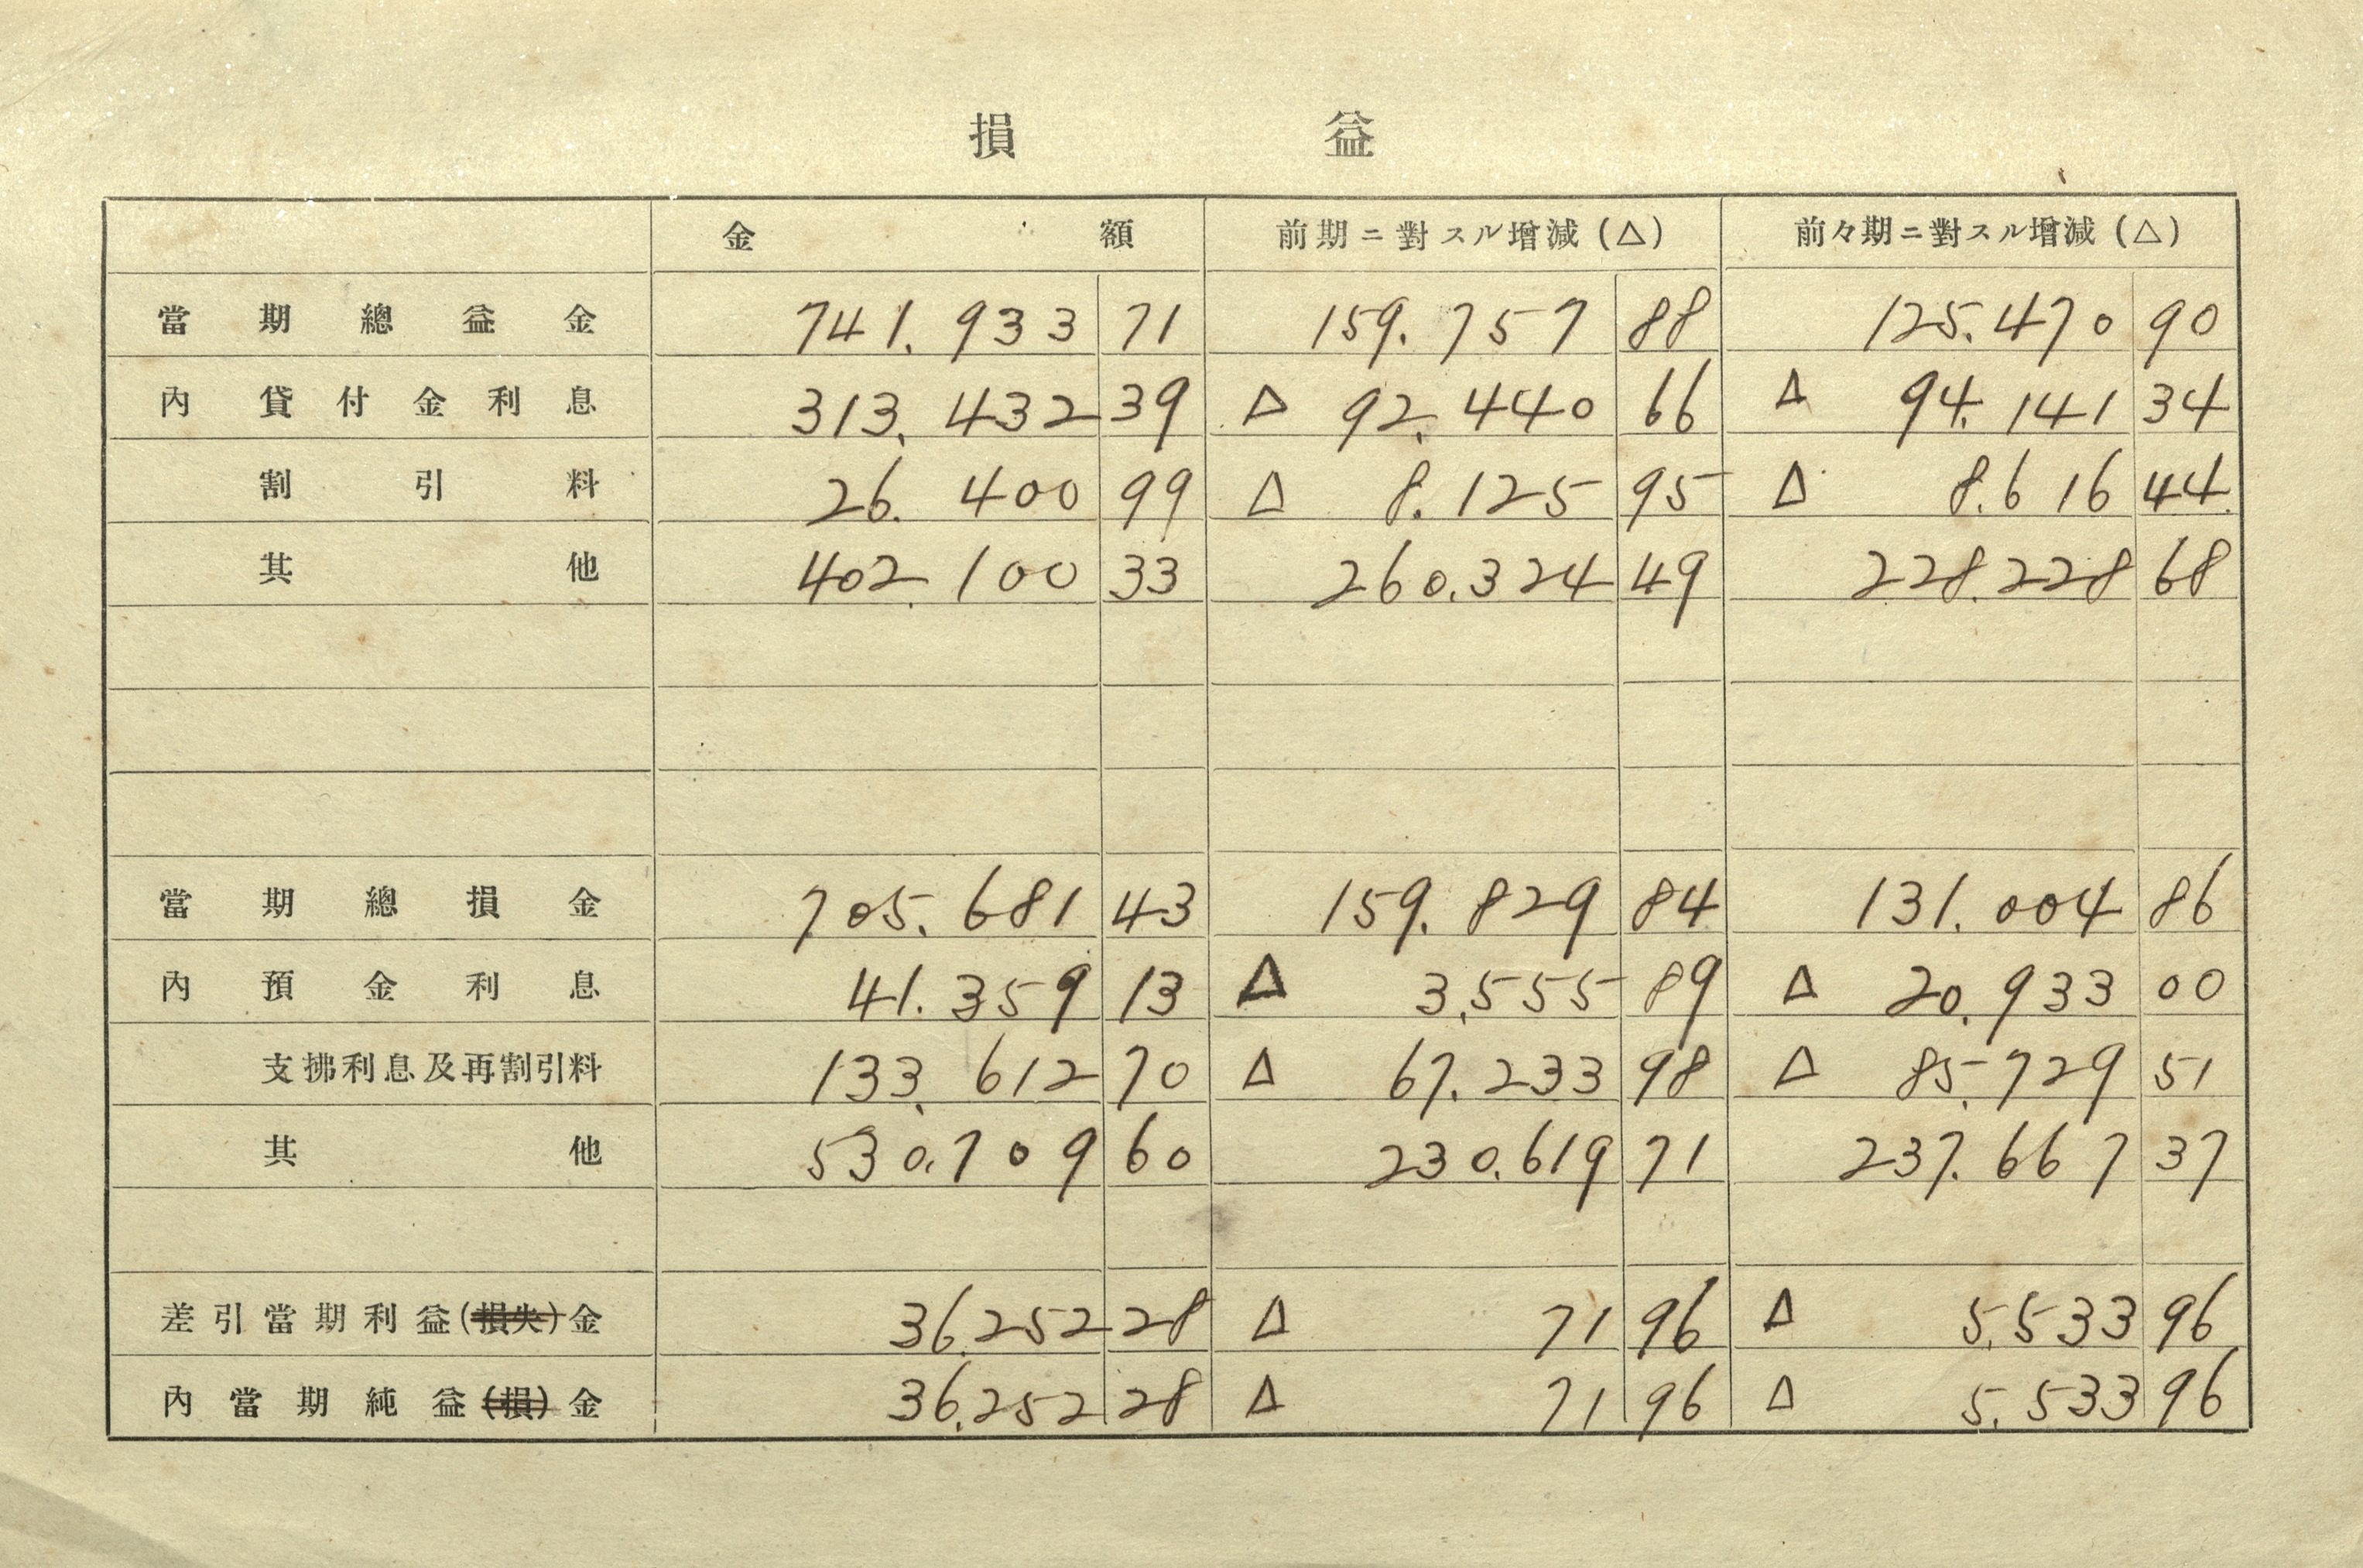 損益
金額 前期ニ對スル增減(△) 前々期ニ對スル增減(△)
當期總益金 741.933 71 159.757 88 125.470 90
內 貸付金利息 313.432 39 △ 92.440 66 △ 94.141 34
割引料 26.400 99 △ 8.125 95 △ 8.616 44
其他 402.100 33 260.324 49 228.228 68
當期總損金 705.681 43 159.829 84 131.004 86
內 預金利息 41.359 13 △ 3.555 89 △ 20.933 00
支拂利息及再割引料 133.612 70 △ 67.233 98 △ 85.729 51
其他 530.709 60 230.619 71 237.667 37
差引當期利益(損失)金 36.252 28 △ 71 96 △ 5.533 96
內當期純益(損)金 36.252 28 △ 71 96 △ 5.533 96